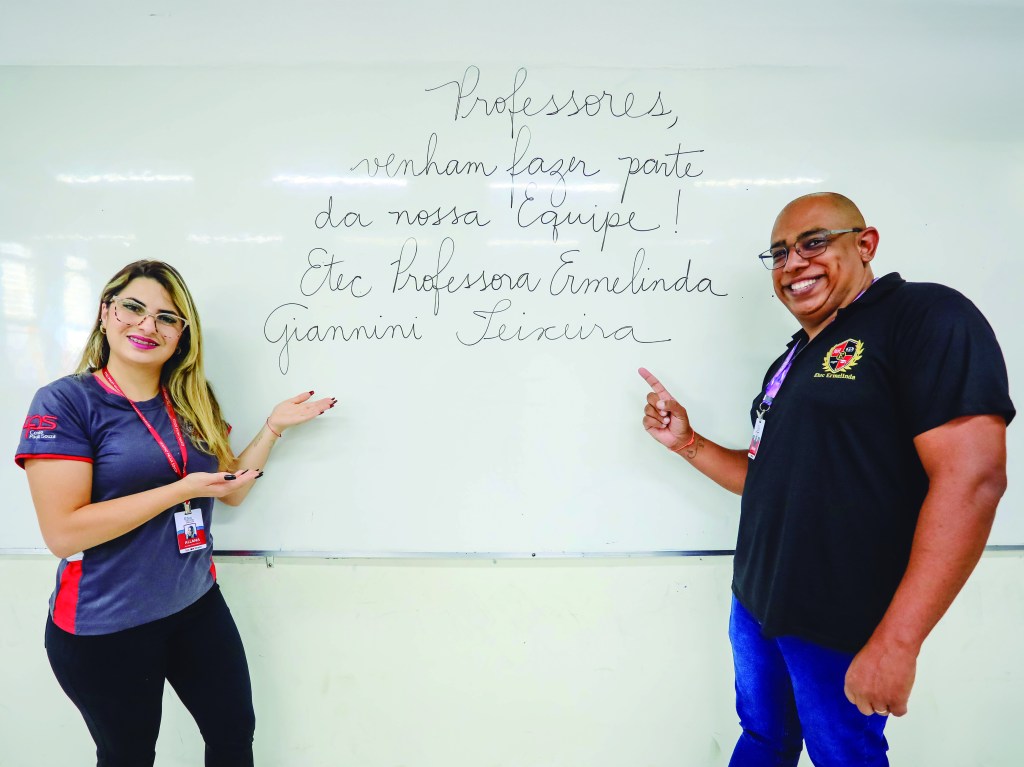 Professores,
venham fazer parte
da nossa Equipe!
Etec Professora Ermelinda
Giannini Teixeira
Etec Ermelinda